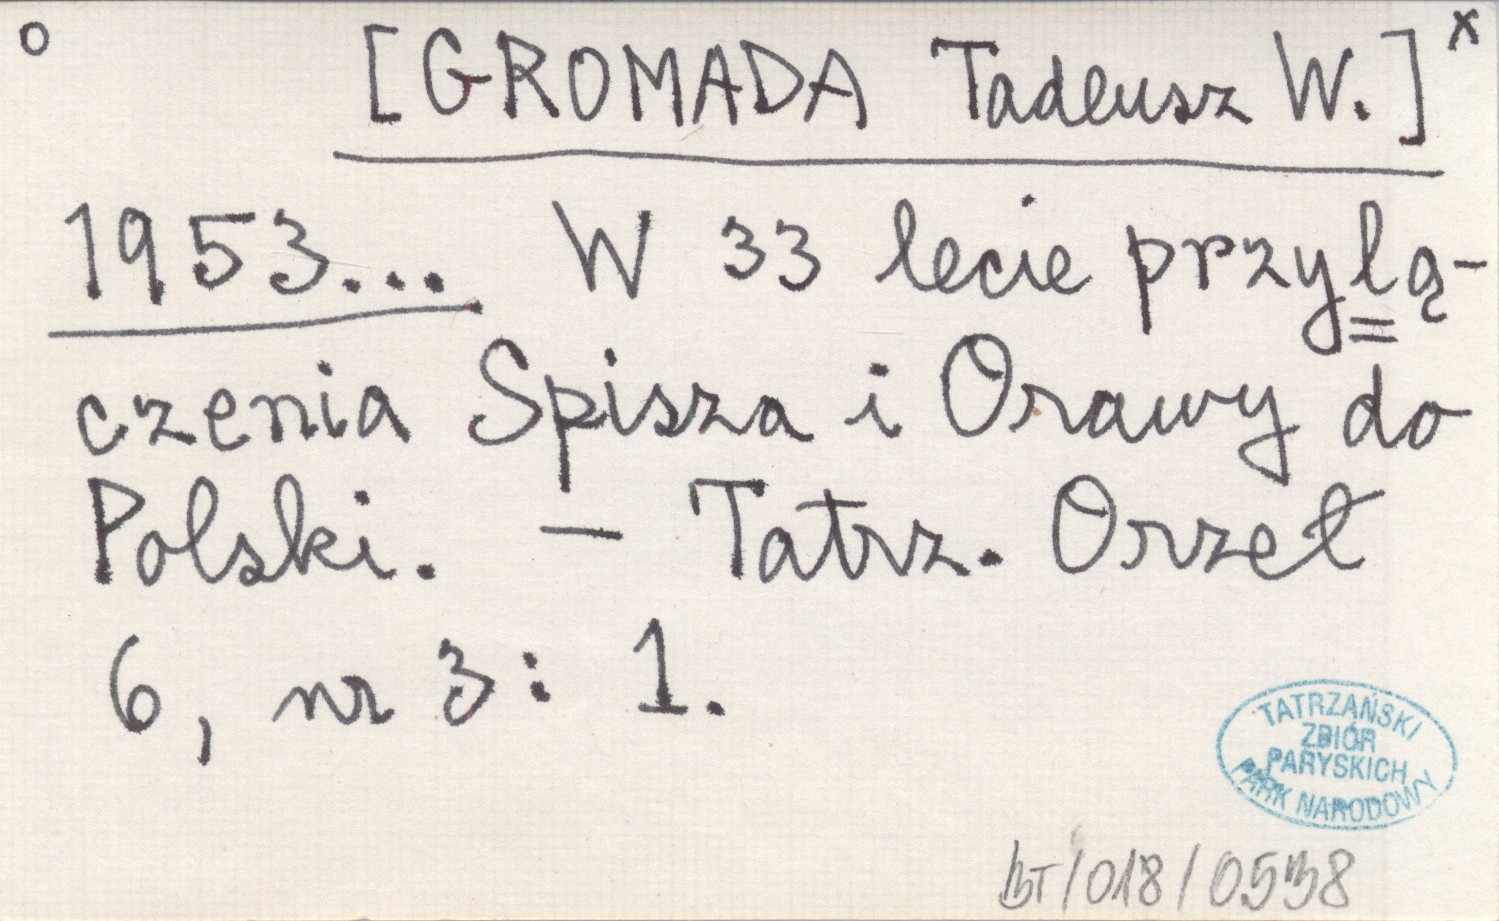 o [GROMADA Tadeusz W.] x
1953... W 33 lecie przylą-
czenia Spisza i Orawy do
Polski. — Tatrz. Orzeł
6, nr 3: 1.
TATRZAŃSKI
ZBIÓR
PARYSKICH
PARK NARODOWY
BT/018/0538